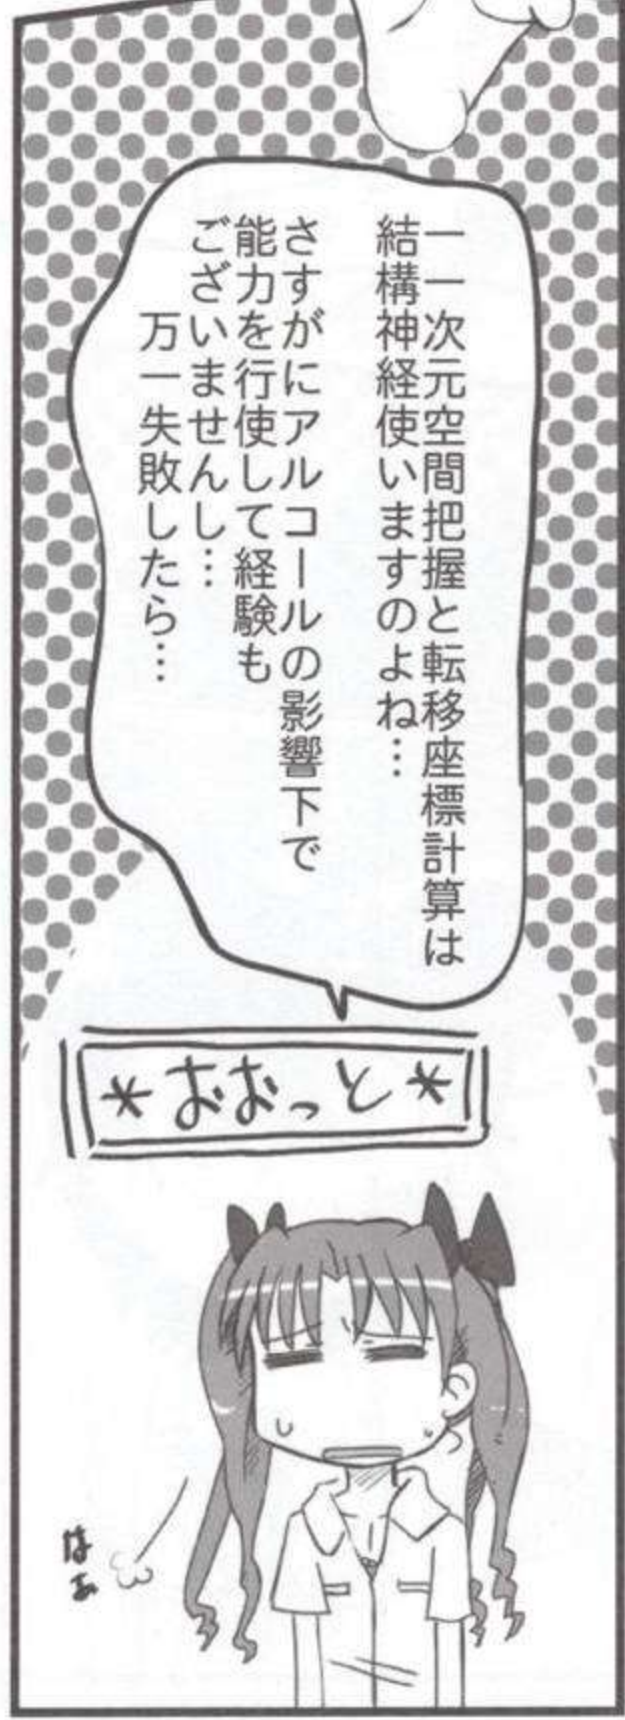 一一次元空間把握と転移座標計算は
結構神経使いますのよね…
さすがにアルコールの影響下で
能力を行使して経験も
ございませんし…
万一失敗したら…
*おおっと*
はぁ